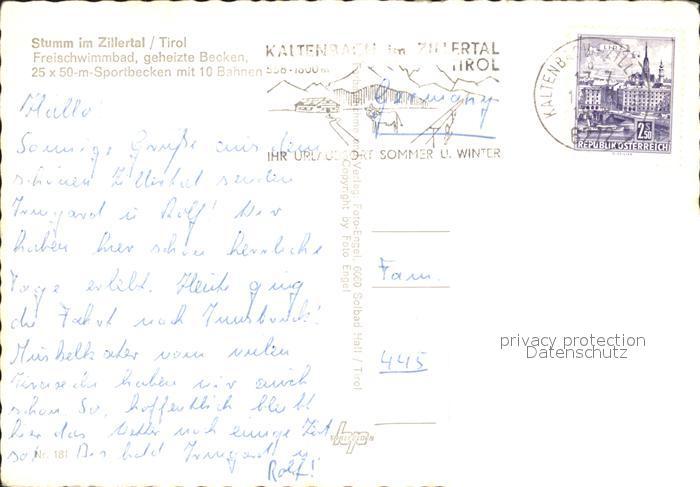 Stumm im Zillertal / Tirol
Freischwimmbad, geheizte Becken,
25 x 50-m-Sportbecken mit 10 Bahnen
KALTENBACH im ZILLERTAL
TIROL
558-1800 m
IHR URLAUBSORT SOMMER U. WINTER
KALTENBACH
2.50
REPUBLIK ÖSTERREICH
Germany
Hallo!
Sonnige Grüße aus dem
schönen Zillertal senden
Irmgard u Rolf! Wir
haben hier schon herrliche
Tage erlebt. Heute ging
die Fahrt nach Innsbruck!
Muskelkater vom vielen
haben wir auch
schon. So, hoffentlich bleibt
hier das Wetter noch einige Zeit
so! Bis bald Irmgard u
Rolf!
Fam.
445
Verlag: Foto-Engel, 6060 Solbad Hall / Tirol
Copyright by Foto Engel
Nr. 181
privacy protection
Datenschutz